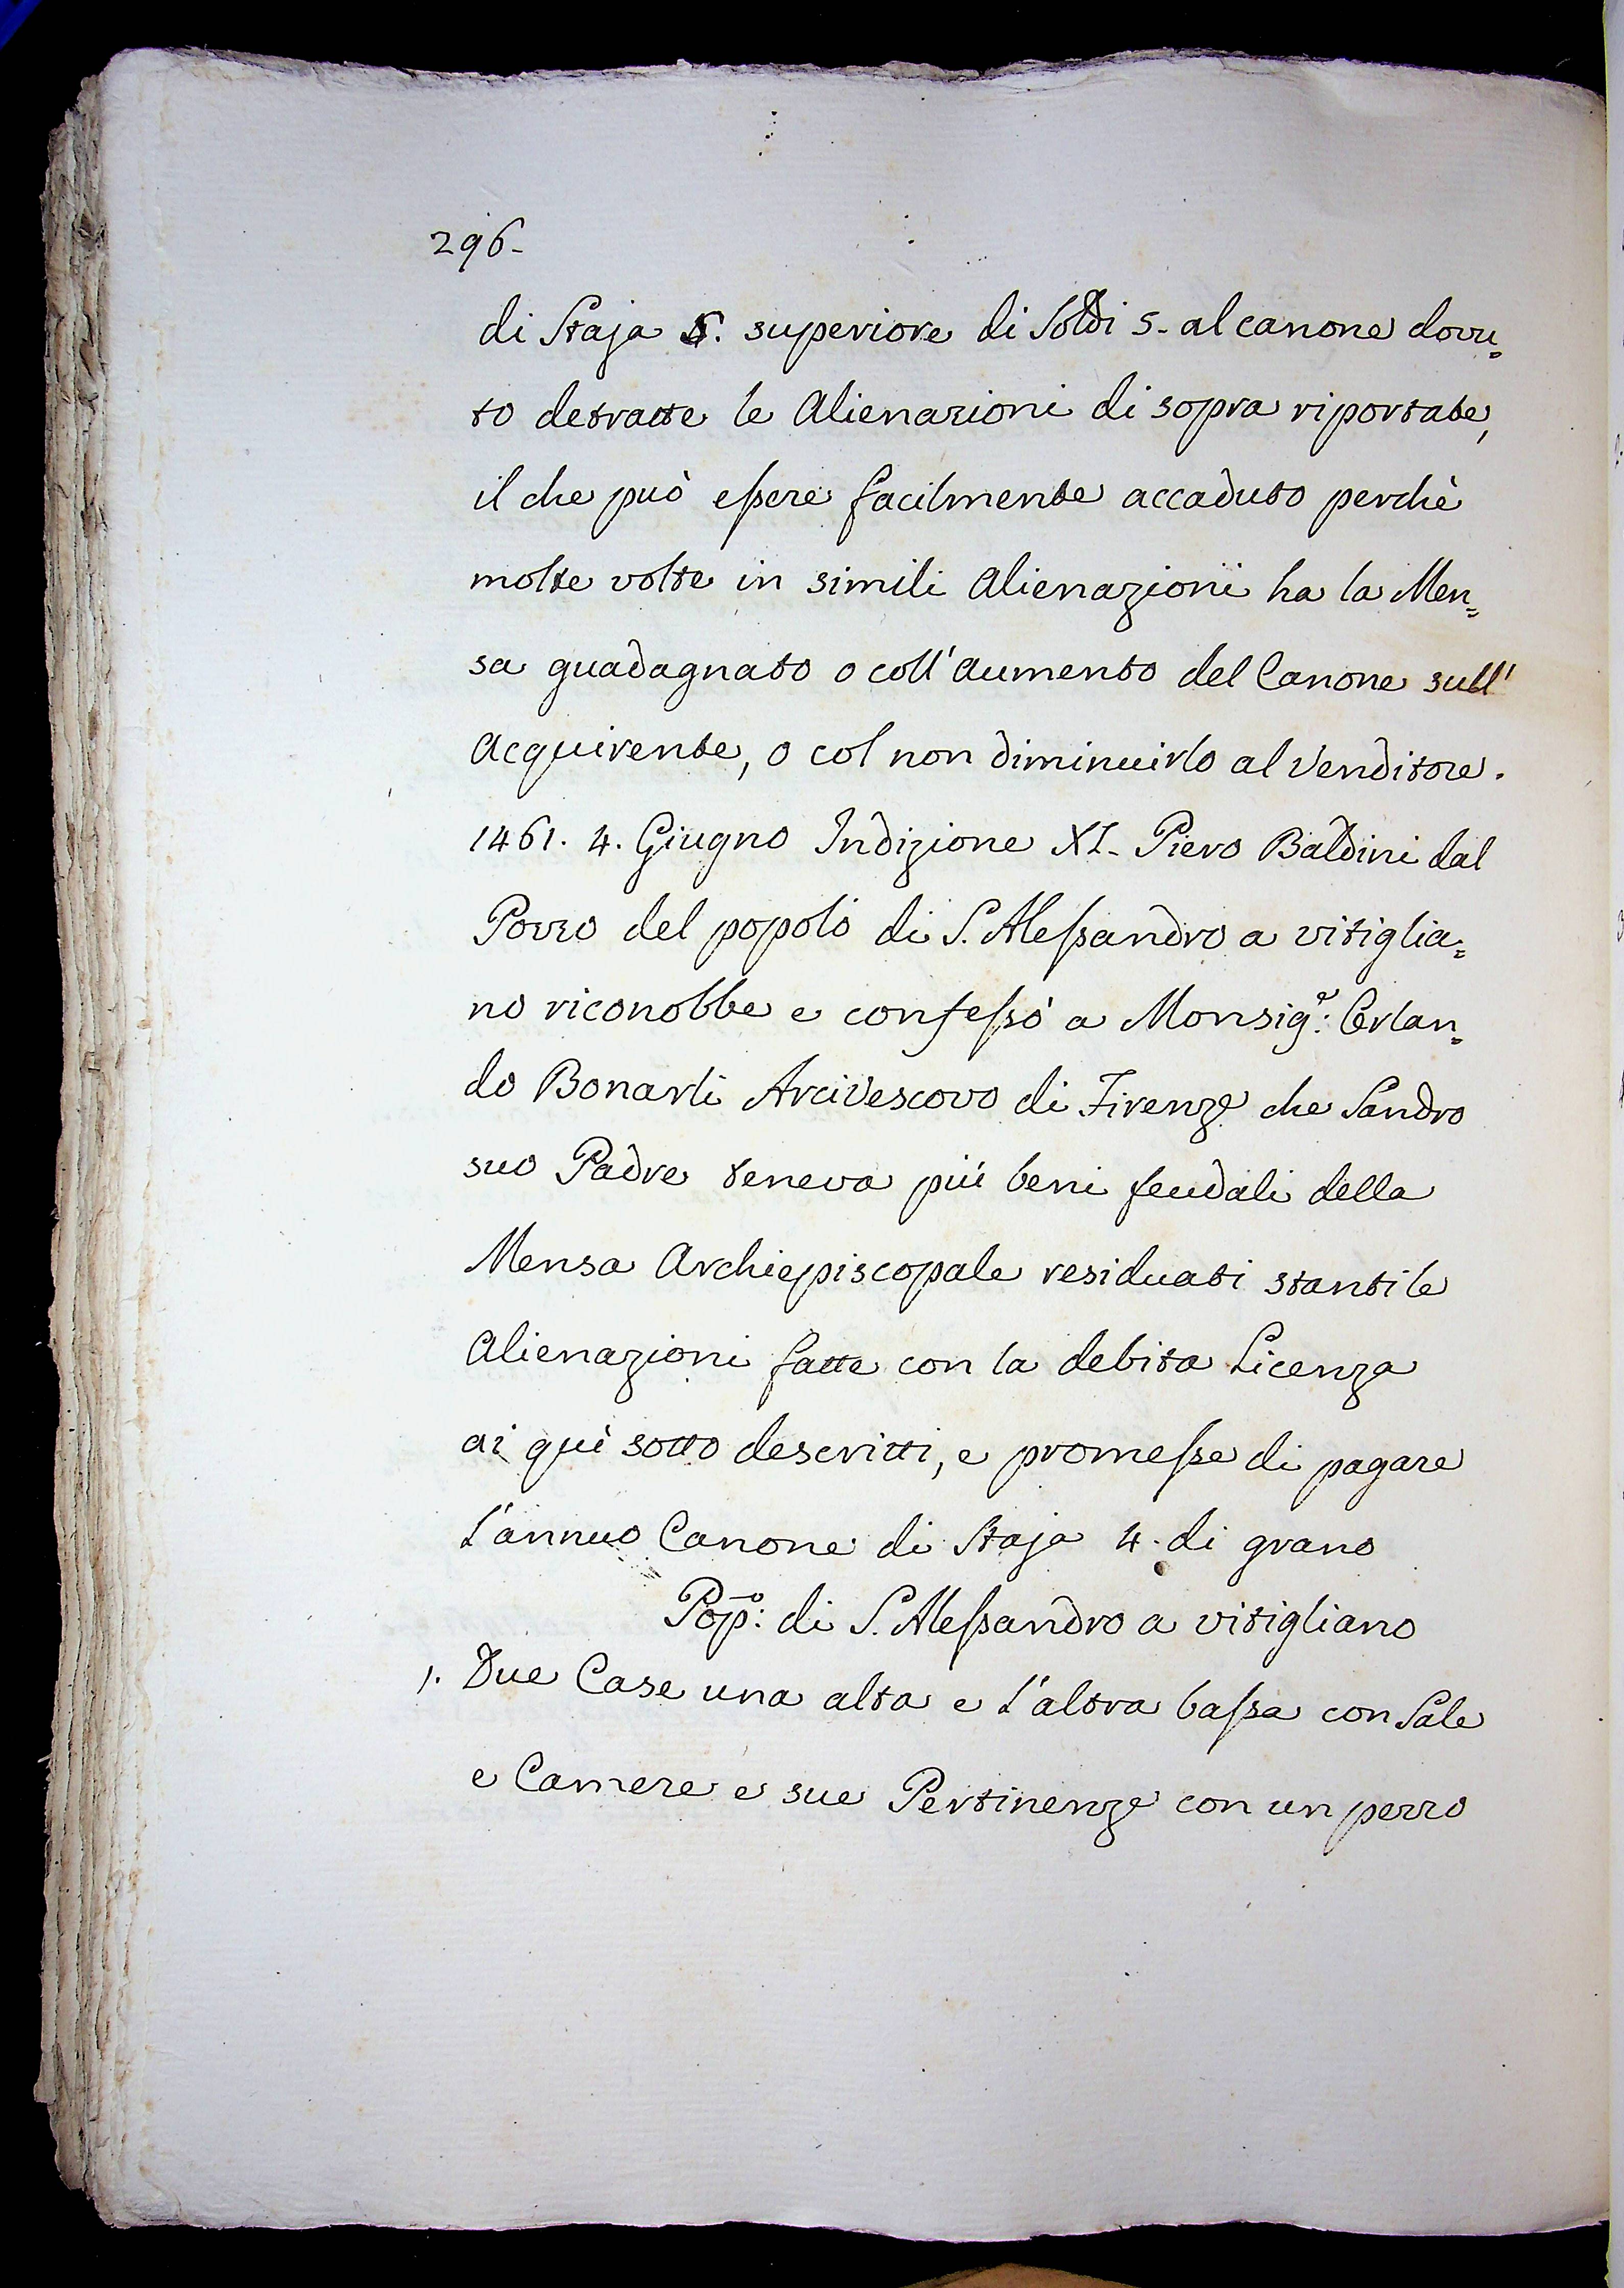 296-
di Staja 5. superiore di Soldi 5- al canone dovu=
to detratte le Alienazioni di sopra riportate,
il che può eſsere facilmente accaduto perchè
molte volte in simili Alienazioni ha la Men=
sa guadagnato o coll' Aumento del Canone sull'
Acquirente, o col non diminuirlo al Venditore.
1461. 4. Giugno Indizione XI- Piero Baldini dal
Pozzo del popolo di S. Aleſsandro a vitiglia=
no riconobbe e confeſsò a Monsig.e: Orlan=
do Bonarli Arcivescovo di Firenze che Sandro
suo Padre teneva più beni feudali della
Mensa Archiepiscopale residuati stanti le
Alienazioni fatte con la debita Licenza
ai qui sotto descritti, e promeſse di pagare
l'annuo Canone di Staja 4. di grano
Pop.o: di S. Aleſsandro a vitigliano
1. Due Case una alta e l'altra baſsa con Sale
e Camere e sue Pertinenze con un pezzo